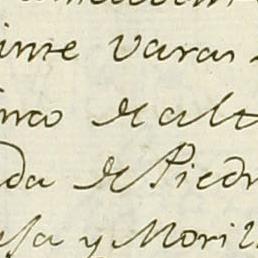 inte varas
inco de alt
da de Piedr
esa y Moril